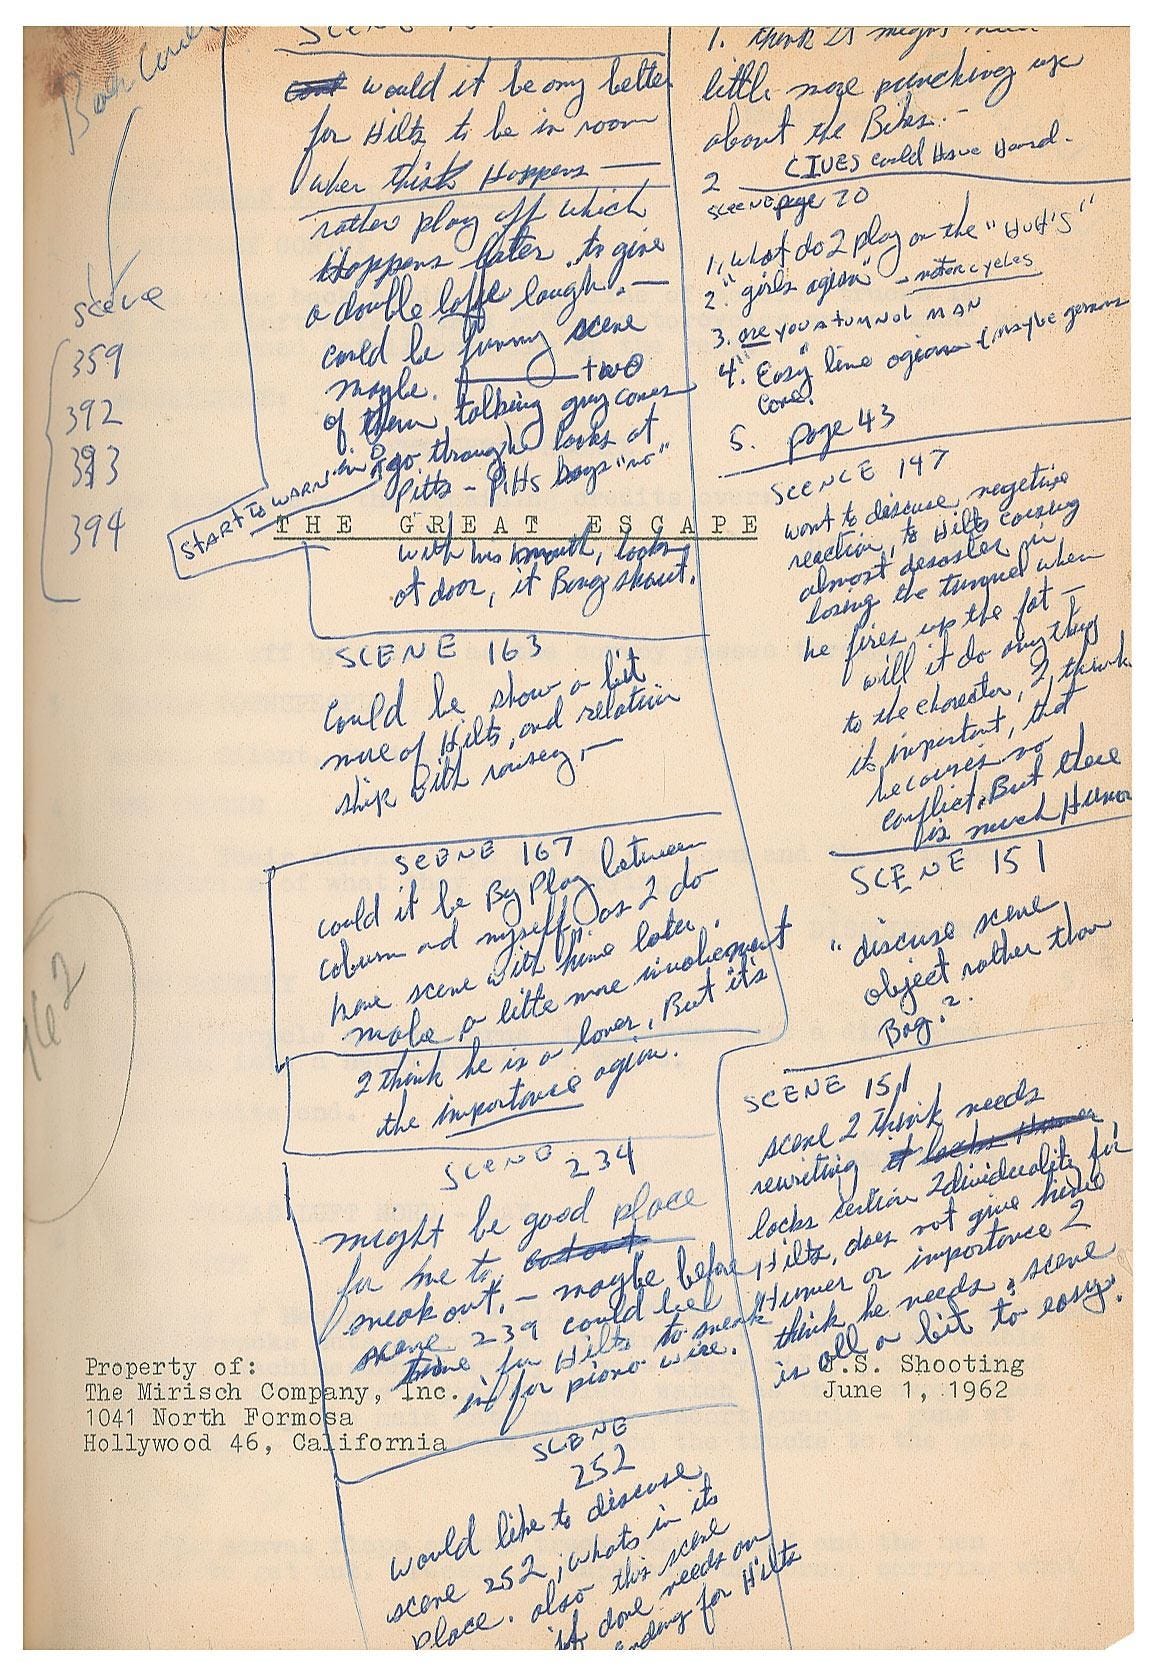 scene
359
392
393
394
would it be any better
for Hilts to be in room
when this Happens —
rather play off which
Happens later . to give
a double laugh . —
could be funny scene
maybe. two
of them talking guy comes
in go through he looks at
Pitts – Pitts says "no"
START TO WARN
THE GREAT ESCAPE
with his mouth, looks
at door, it Bang shout.
SCENE 163
could be show a bit
more of Hilts, and relation
ship with ramsey, —
SCENE 167
could it be By Play between
coburn and myself, as I do
have scene with hime later.
make a little more involvement
I think he is a loner, But it's
the importance agian.
SCENE 234
might be good place
for me to
sneak out, – maybe before
scene 239 could be
time for Hilts to sneak
in for piano wire.
SCENE
252
would like to discuse
scene 252, whats in its
place. also this scene
if done needs an
ending for Hilts
1. think
little more punching up
about the Bikes. –
CIVES could Have Heard.
2
SCENE page 20
1, what do I play on the "HUH'S"
2. "girls agian" – motorcycles
3. are you a tunnol MAN
4. "Easy" line agian (maybe germans
come.
5. page 43
SCENCE 147
want to discuse, negetive
reaction, to Hilts causing
almost desaster in
losing the tunnel when
he fires up the fat —
will it do anything
to the charector, I, think
its important, that
becauses no
conflict, But there
is much Humor
SCENE 151
" discuse scene
object rather than
Bag?.
SCENE 151
scene I think needs
rewriting it lacks Humor
lacks Idividuality for
Hilts, does not give hime
Humer or importance I
think he needs, scene
is all a bit to easy.
Property of:
The Mirisch Company, Inc.
1041 North Formosa
Hollywood 46, California
.S. Shooting
June 1, 1962